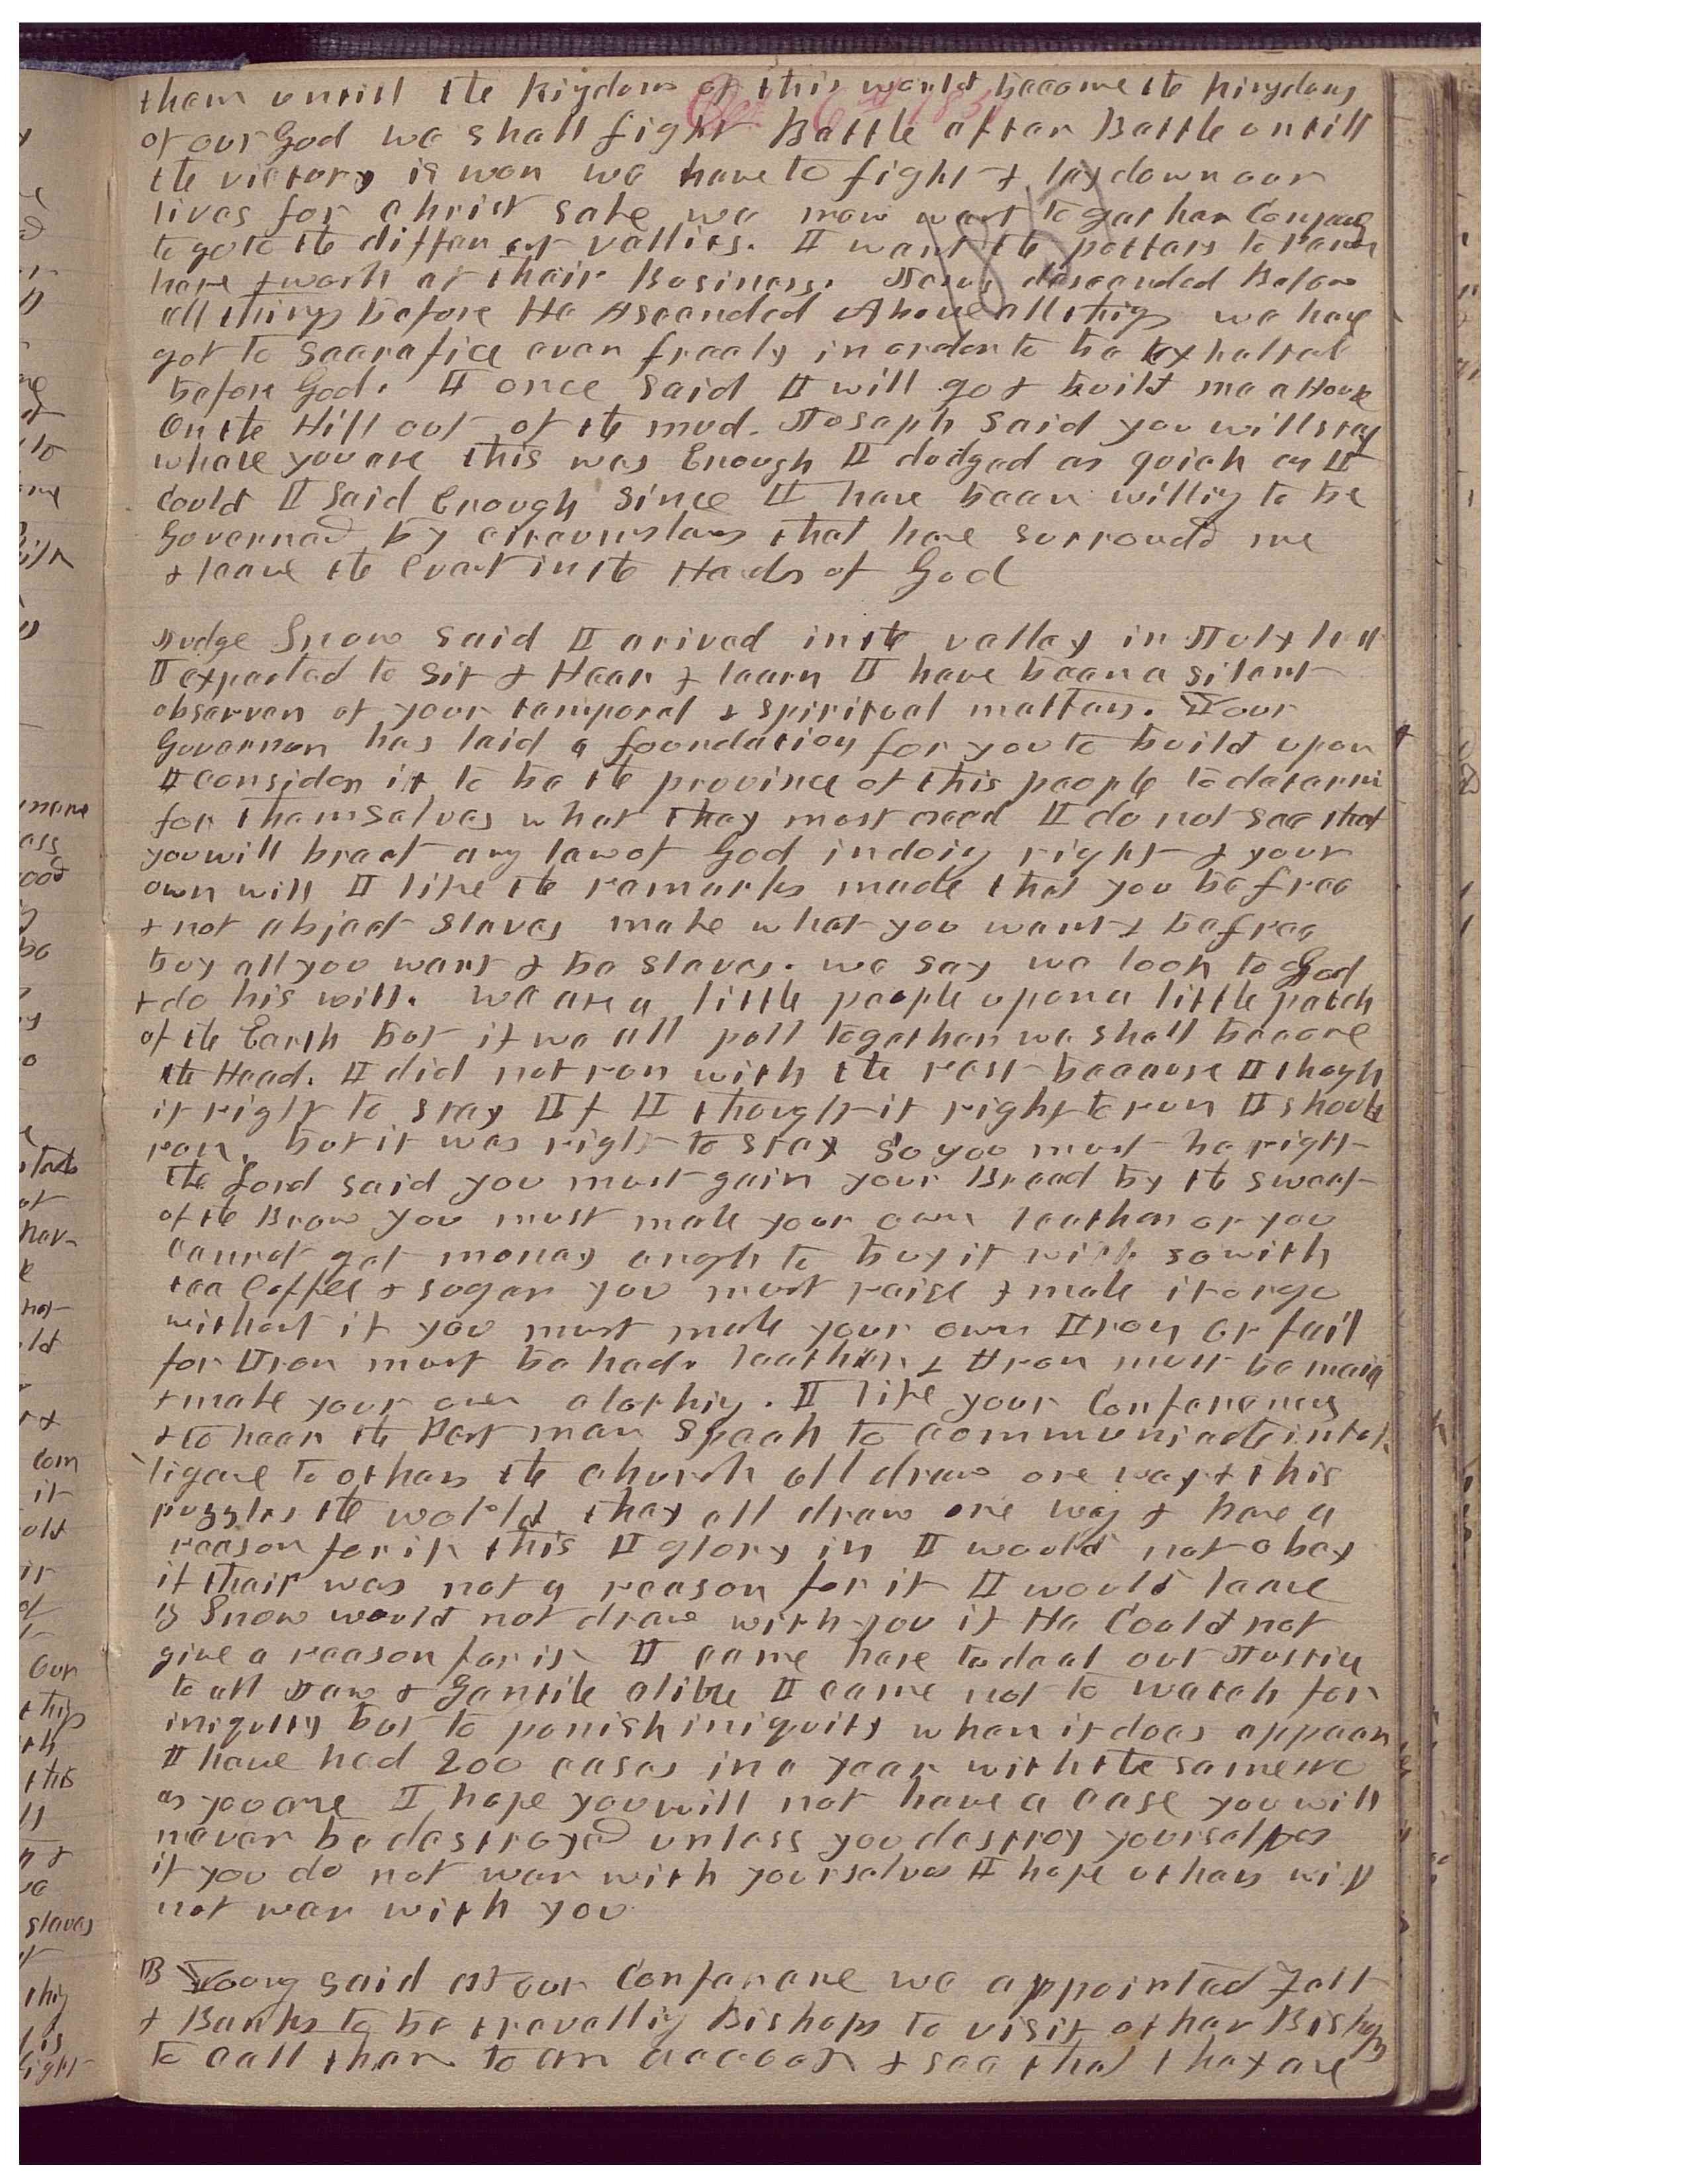 them untill the Kigdoms of this world become the kingdoms
of our God we shall fight Battle after Battle untill
the victory is won we have to fight & lay down our
lives for Christ sake we now want to gather
to go to the different vallies. I want the potters to
here & work at their Business. Jesus descended Below
all things before He Ascended Above all thigs we have
got to Sacrafice even freely in order to be exhalted
before God. I once said I will go & build me a House
On the Hill out of the mud. Joseph said you will stay
whare you are this was Enough I dodged as quick as I
could I said Enough Since I have been willig to be
Governed by circumstans that have surroudd me
& leave the Event in the Hads of God
Judge Snow said I arived in the valley in July last
I expected to Sit & Hear & learn I have been a silent
observer of your temporal & spiritual matters. Your
Governor has laid a foundation for you to build upon
I consider it to be the province of this people to determi
for themselves what they most need I do not see that
you will breat any law of God in doig right & your
own will I like the remarks made that you be free
& not abject slaves make what you want & be free
buy all you want & be slaves. we say we look to God
& do his will. we are a little people upon a little patch
of the Earth but if we all pull together we shall become
the Head. I did not run with the rest because I thogh
it right to stay If I thought it right to run I should
run. but it was right to stay So you must be right
the Lord said you must gain your Bread by the sweat
of the Brow you must make your own leather or you
cannot get money enogh to buy it with so with
tea Coffee & sugar you must raise & make it or go
without it you must make your own Iron or fail
for Iron must be had. leather & Iron must be maid
& make your own clothig. I like your Conferences
& to hear the Poor man Speak to communicate intel
ligence to others the church all draw one way & this
puzzles the wold they all draw one way & have a
reason for it this I glory in I would not obey
if their was not a reason for it I would leave
B Snow would not draw with you if He Could not
give a reason for it I came here to deal out Justice
to all Jew & Gentile alike I came not to watch for
iniquity but to punish iniquity when it does appear
I have had 200 cases in a year with the same No
as you are I hope you will not have a case you will
never be destroyed unless you destroy yourselves
if you do not war with yourselves I hope others will
not war with you
B Young said at our Conferance we appointed
& Banks to be travellig Bishops to visit other Bishops
to call them to an account & see that they are